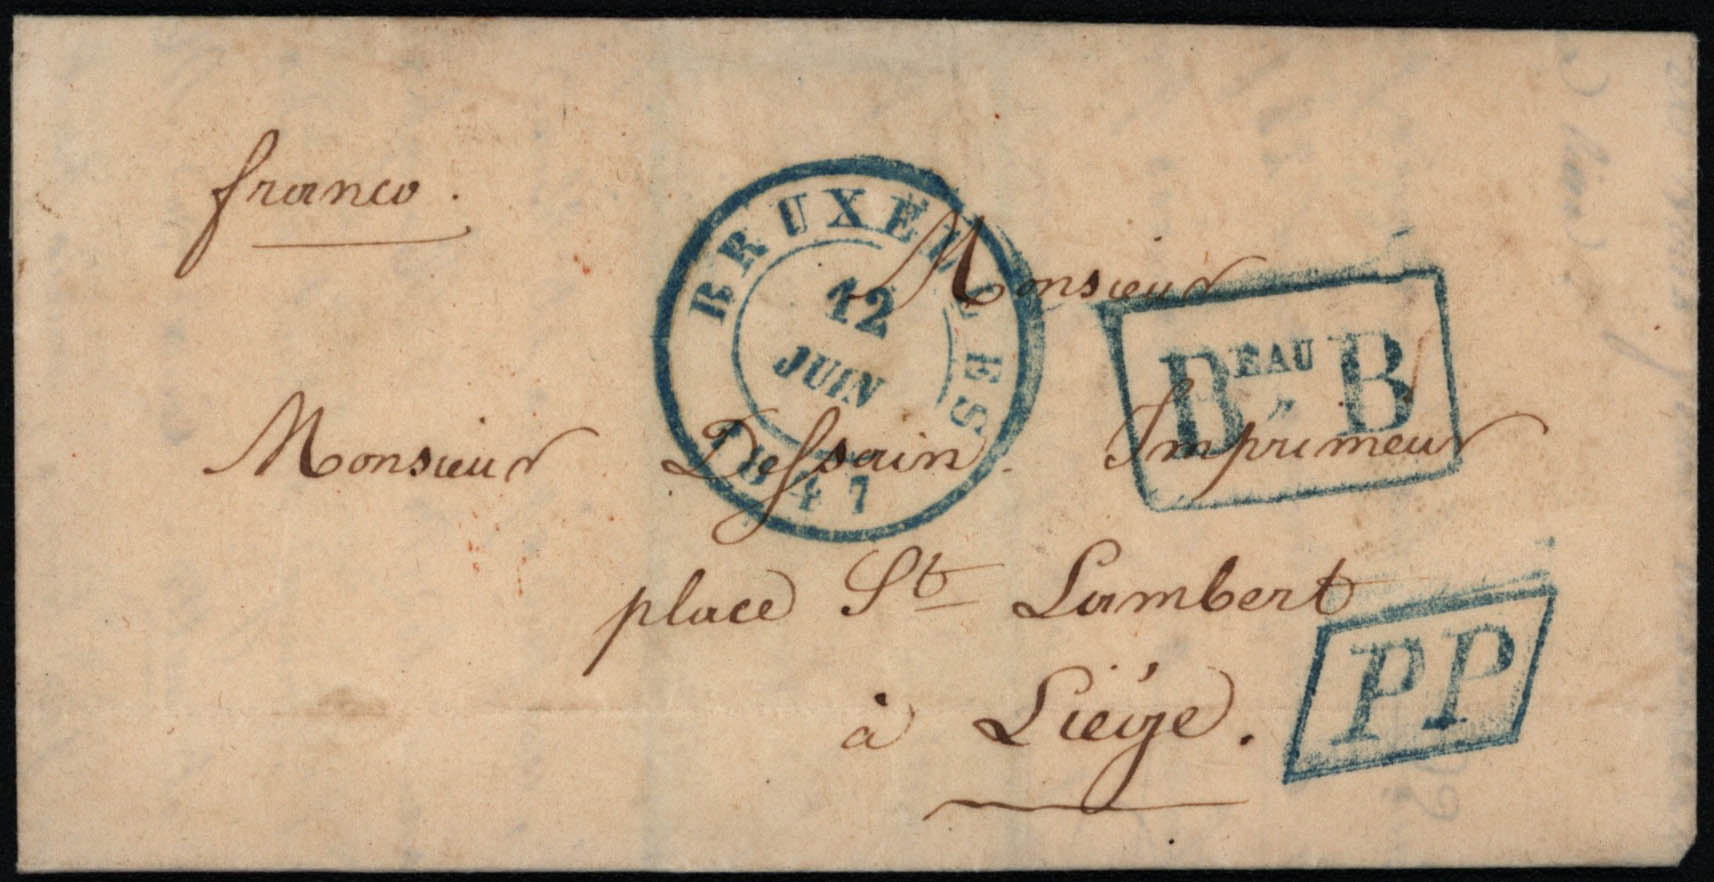 franco.
BRUXELLES
12
JUIN
1847
Monsieur
BEAU B
Monsieur Dessain Imprimeur
place St Lambert
à Liége.
PP